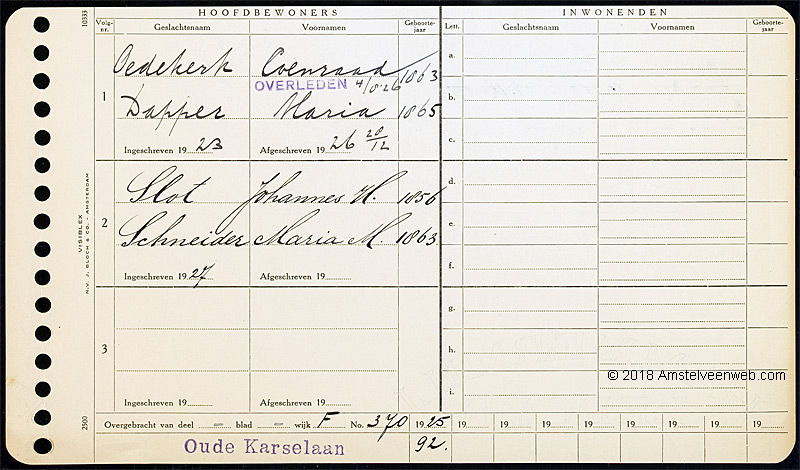 HOOFDBEWONERS
INWONENDEN
10333
Volg-nr.
Geslachtsnaam
Voornamen
Geboorte-jaar
Lett.
Geslachtsnaam
Voornamen
Geboorte-jaar
1
Oedekerk Coenraad 1863
OVERLEDEN 4/8'26
Dapper Maria 1865
Ingeschreven 1923 Afgeschreven 1926 28/12
2
Slot Johannes H. 1856
Schneider Maria M. 1863
Ingeschreven 1927 Afgeschreven 19
3
Ingeschreven 19 Afgeschreven 19
a.
b.
c.
d.
e.
f.
g.
h.
i.
VISIBLEX
N.V. J. BLOCH & CO. - AMSTERDAM
2500
© 2018 Amstelveenweb.com
Overgebracht van deel – blad – wijk F No. 370 1925 19 19 19 19 19 19 19 19
Oude Karselaan 92.